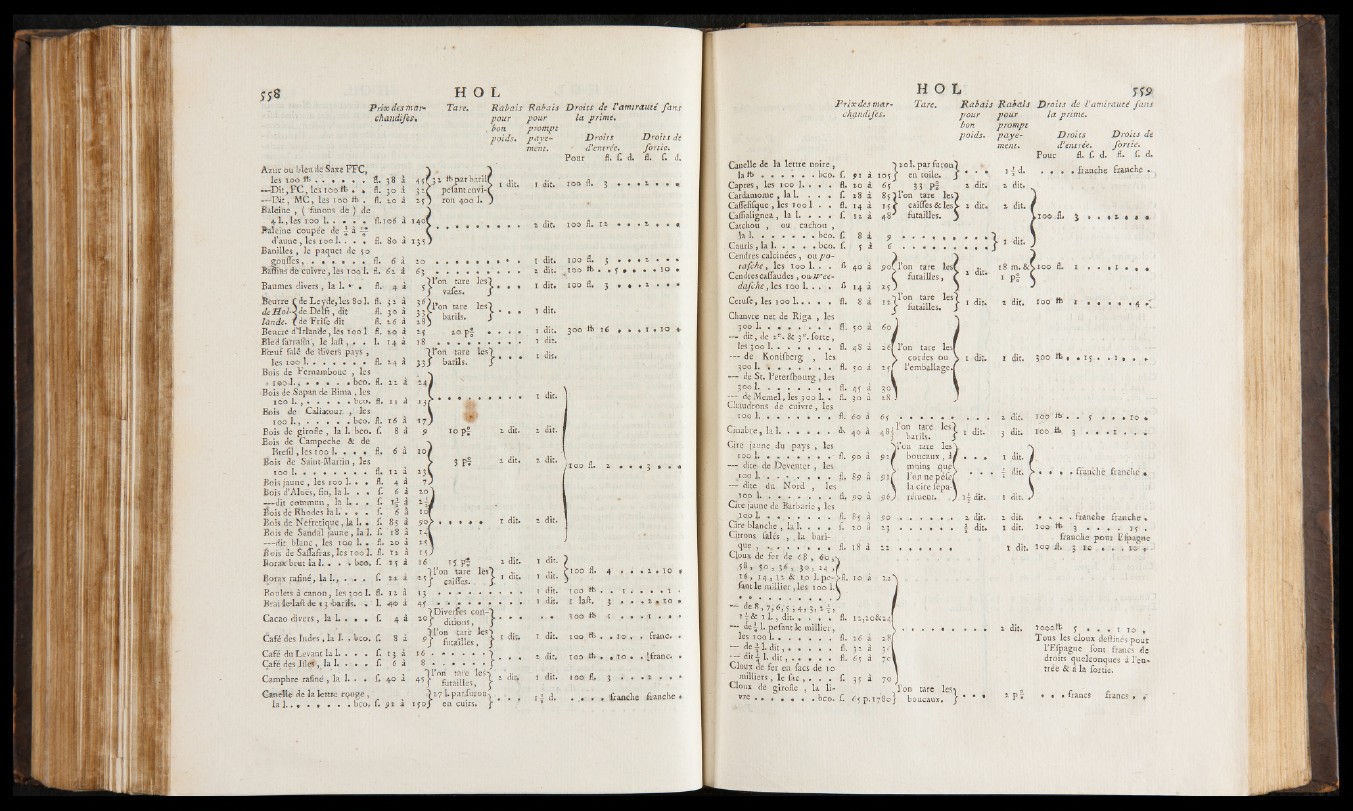 558 H O L
Prix des mar- Tare. Rabais Rabais Droits de l'amirauté sans
chandises. pour pour la prime.
bon prompt
poids. paye- Droits Droits de
ment. d'entrée. sortie.
Pour fl. s. d. fl. s. d.
Azur ou bleu de Saxe FFC,
les 100 ℔ . . . . . . fl. 38 à 45 32 ℔ par baril 1 dit. 1 dit. 100 fl. 3 . . . . 2 . . .
—Dit, FC, les 100 ℔ . . fl. 30 à 32 pesant envi-
—Dit, MC, les 100 ℔ . fl. 20 à 25 ron 400 l.
Baleine, ( fanons de ) de
4 l., les 100 l. . . . . . fl. 106 à 140 . . . . . . . . 2 dit. 100 fl. 12 . . . . 2 . . .
Baleine coupée de
d'aune, les 100 l. . . . fl. 80 à 135
Banilles, le paquet de 50
gousses, . . . . . . . fl. 6 à 20 . . . . . . . . . 1 dit. 100 fl. 3 . . . . 2 . . .
Bassins de cuivre, les 100 l. fl. 62 à 63 . . . . . . . . . 2 dit. 100 ℔ . . 5 . . . . . 10 .
Baumes divers, la l. . . fl. 4 à 5 l'on tare les vases. . . . 1 dit. 100 fl. 3 . . . . 2 . . .
Beurre de Leyde, les 80 l. fl. 32 à 36
de Hol- de Delft, dit fl. 30 à 33 l'on tare les barils. . . . 1 dit.
lande. de Frise dit fl. 26 à 28
Beurre d'Irlande, les 100 l. fl. 20 à 25 20 p% . . . . 1 dit. 300 ℔ 16 . . . . 1 . 10 .
Bled sarrasin, le last, . . l. 14 à 18 . . . . . . . . . 1 dit.
Bœuf salé de divers pays,
les 100 l. . . . . . . . fl. 24 à 33 l'on tare les barils. . . . 1 dit.
Bois de Fernambouc, les
100 l., . . . . . bco. fl. 22 à 24
Bois de Sapan de Bima, les
100 l., . . . . . bco. fl. 11 à 13 . . . . . . . . 1 dit.
Bois de Caliatour, les
100 l., . . . . . bco. fl. 16 à 17
Bois de girofle, la l. bco. s. 8 à 9 10 p% 2 dit. 2 dit.
Bois de Campeche & de
Bresil, les 100 l. . . . . fl. 6 à 10
Bois de Saint-Martin, les 3 p% 2 dit. 2 dit. 100 fl. 2 . . . . 3 . . .
100 l. . . . . . . . . fl. 12 à 23
Bois jaune, les 100 l. . . fl. 4 à 7
Bois d'Aloès, fin, la l. . . s. 6 à 20
—dit commun, la l. . . s. 1½ à
Bois de Rhodes la l. . . . s. 6 à 10
Bois de Nefretique, la l. . s. 85 à 90 . . . . . 1 dit. 2 dit.
Bois de Sandal jaune, la l. s. 18 à
—dit blanc, les 100 l. . fl. 20 à 25
Bois de Sassafras, les 100 l. fl. 12 à 15
Borax brut la l. . . . bco. s. 25 à 26 15 p% 2 dit. 1 dit.
Borax rafiné, la l., . . . s. 22 à 25 l'on tare les caisses. 1 dit. 1 dit. 100 fl. 4 . . . . 2 . 10 .
Boulets à canon, les 300 l. fl. 12 à 13 . . . . . . . . . 1 dit. 100 ℔ . . . 1 . . . . . 1 .
Brai le last de 13 barils. . l. 40 à 45 . . . . . . . . . 1 dit. 1 last. 3 . . . . 2 . 10 .
Cacao divers, la l. . . . s. 4 à 20 Diverses conditions, . . . . . 100 ℔ 1 . . . . 1 . . .
Café des Indes, la l. . bco. s. 8 à 9 l'on tare les futailles, 1 dit. 1 dit. 100 ℔ . . 10 . . franc. .
Café du Levant la l. . . . s. 13 à 16 . . . . . .
Café des Isles, la l. . . . s. 6 à 8 . . . . . . 2 dit. 100 ℔ . . 10 . . franc. .
Camphre rafiné, la l. . . s. 40 à 45 l'on tare les futailles, 2 dit. 1 dit. 100 fl. 3 . . . . 2 . . .
Canelle de la lettre rouge,
la l. . . . . . . . bco. s. 92 à 150 17 l. par suron en cuirs. . . . 1½ d. . . . . franche franche .
H O L 559
Prix des mar- Tare. Rabais Rabais Droits de l'amirauté sans
chandises. pour pour la prime.
bon prompt
poids. paye- Droits Droits de
ment. d'entrée. sortie.
Pour fl. s. d. fl. s. d.
Canelle de la lettre noire,
la ℔ . . . . . . . bco. s. 92 à 105 20 l. par suron en toile. . . . 1½ d. . . . . franche franche .
Capres, les 100 l. . . . fl. 20 à 65 33 p% 2 dit. 2 dit.
Cardamome, la l. . . . s. 28 à 85 l'on tare les
Cassefisque, les 100 l . . fl. 14 à 15 caisses & les 2 dit. 2 dit. 100 fl. 3 . . . . 2 . . .
Cassialignea, la l. . . . s. 12 à 48 futailles.
Catchou, ou cachou,
la l. . . . . . . . bco. s. 8 à 9 . . . . . . . . 1 dit.
Cauris, la l. . . . . bco. s. 5 à 6 . . . . . . . .
Cendres calcinées, ou po-
tasche, les 100 l. . . fl. 40 à 90 l'on tare les futailles, 2 dit. 18 m. & 1 p% 100 fl. 1 . . . . 1 . . .
Cendres cassaudes, ou We-
dasche, les 100 l. . . . fl. 14 à 25
Ceruse, les 100 l. . . . fl. 8 à 12 l'on tare les futailles. 1 dit. 2 dit. 100 ℔ 1 . . . . . 4 .
Chanvre net de Riga, les
300 l. . . . . . . . . fl. 50 à 60
— dit, de 2e. & 3e. sorte,
les 300 l. . . . . . . . fl. 48 à 26 l'on tare les
— de Konisberg, les cordes ou 1 dit. 1 dit. 300 ℔ . . 15 . . 1 . . .
300 l. . . . . . . . . fl. 50 à 25 l'emballage.
— de St. Petersbourg, les
300 l. . . . . . . . . fl. 45 à 30
— de Memel, les 300 l. . fl. 30 à 28
Chaudrons de cuivre, les
100 l. . . . . . . . . fl. 60 à 65 . . . . . . . . . 2 dit. 100 ℔ . . 5 . . . . 10 .
Cinabre, la l. . . . . . s. 40 à 48 l'on tare les barils. 1 dit. 3 dit. 100 ℔ 3 . . . . 1 . . .
Cire jaune du pays, les
100 l. . . . . . . . . fl. 90 à 92 l'on tare les boucaux, à . . . 1 dit.
— dite de Deventer, les moins que
100 l. . . . . . . . . fl. 89 à 91 l'on ne pese . . . . ½ dit. . . . . franche franche .
— dite du Nord, les la cire sépa-
100 l. . . . . . . . . fl. 90 à 96 rément. 1½ dit. 1 dit.
Cire jaune de Barbarie, les
100 l. . . . . . . . . fl. 85 à 90 . . . . . . 2 dit. 2 dit. . . . . franche franche .
Cire blanche, la l. . . . s. 20 à 23 . . . . . . ½ dit. 1 dit. 100 ℔ 3 . . . . . 15 .
Citrons salés, la bari- franche pour l'Espagne
que . . . . . . . . . fl. 18 à 22 . . . . . . 1 dit. 100 fl. 3 10 . . . 10 .
Cloux de fer de 68, 60,
58, 50, 36, 30, 24,
16, 14, 12 & 10 l. pe- fl. 10 à 22
sant le millier, les 100 l.
— de 8, 7, 6, 5, 4, 3, 2½,
1½ & 1 l., dit. . . . . fl. 12, 20 & 24
— de ¾ l. pesant le millier, . . . . . . . . 2 dit. 1000 ℔ 5 . . . 1 10 ,
les 100 l. . . . . . . . fl. 26 à 28 Tous les cloux destinés pour
— de ½ l. dit, . . . . . . fl. 32 à l'Espagne sont francs de
— dit ¼ l. dit, . . . . . . fl. 65 à 70 droits quelconques à l'en-
Cloux de fer en sacs de 10 trée & à la sortie.
milliers, le sac, . . . . s. 35 à 70
Cloux de girofle, la li-
vre . . . . . . . . bco. s. 65 p. 1780 l'on tare les boucaux. . . . 2 p% . . . francs francs . .